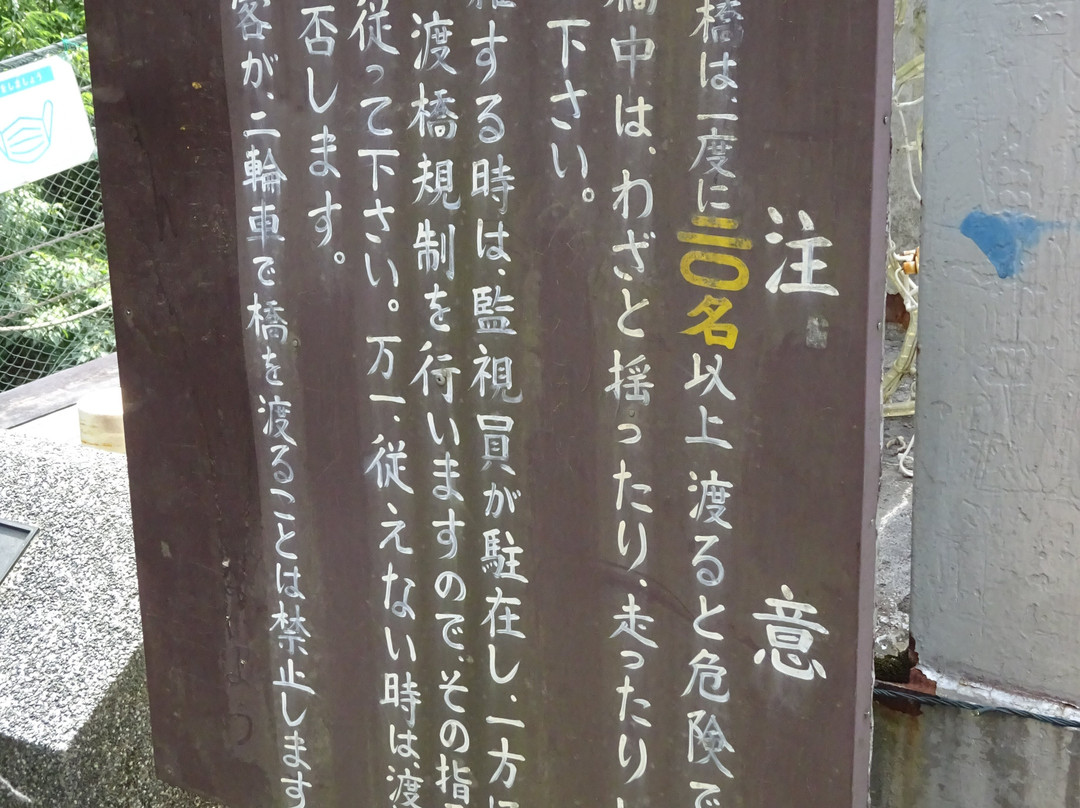 注意
橋は、一度に二〇名以上渡ると危険で
中は、わざと揺ったり、走ったり
下さい。
する時は、監視員が駐在し、一方
渡橋規制を行いますので、その指
従って下さい。万一、従えない時は、渡
否します。
客が、二輪車で橋を渡ることは禁止します
しましょう